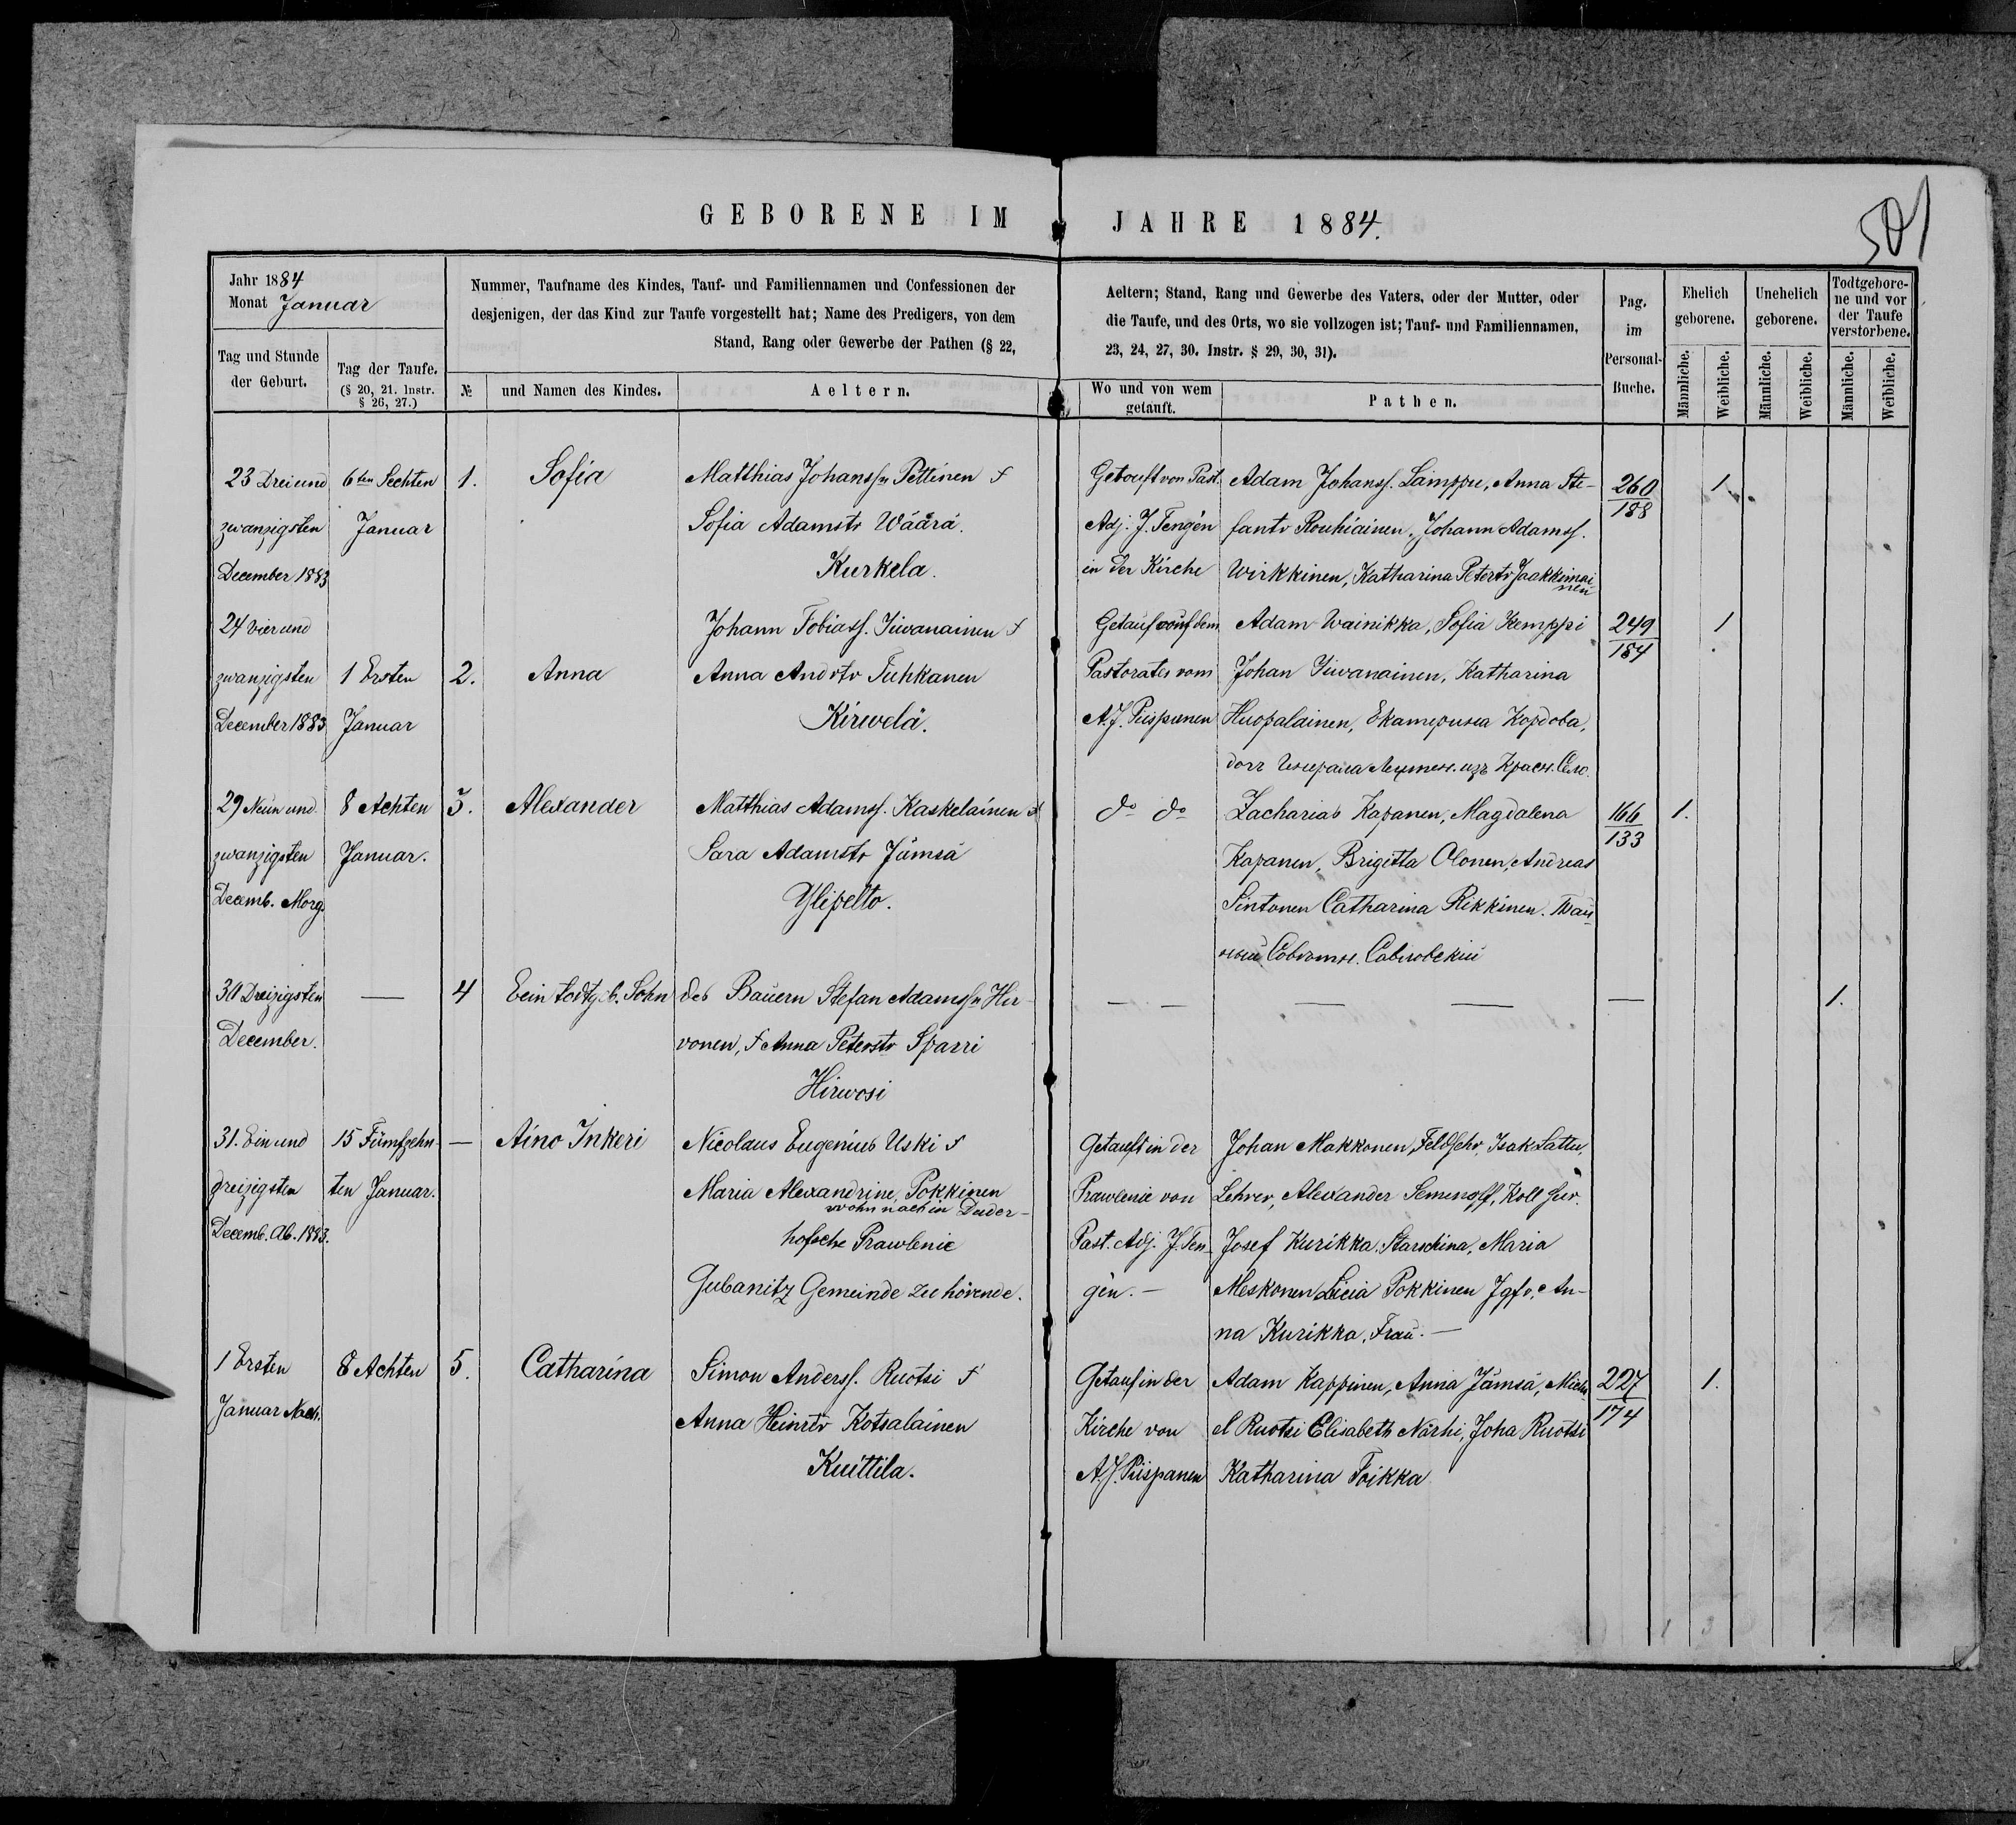 GEBORENE IM JAHRE 1884.
501
Jahr 1884
Monat Januar
Nummer, Taufname des Kindes, Tauf- und Familiennamen und Confessionen der
desjenigen, der das Kind zur Taufe vorgestellt hat; Name des Predigers, von dem
Stand, Rang oder Gewerbe der Pathen (§ 22,
Aeltern; Stand, Rang und Gewerbe des Vaters, oder der Mutter, oder
die Taufe, und des Orts, wo sie vollzogen ist; Tauf- und Familiennamen,
23, 24, 27, 30. Instr. § 29, 30, 31).
Pag.
im
Personal-
Buche.
Ehelich
geborene.
Unehelich
geborene.
Todtgebore-
ne und vor
der Taufe
verstorbene.
Tag und Stunde
der Geburt.
Tag der Taufe.
(§ 20, 21. Instr.
§ 26, 27.)
№
und Namen des Kindes.
Aeltern.
Wo und von wem
getauft.
Pathen.
Männliche.
Weibliche.
Männliche.
Weibliche.
Männliche.
Weibliche.
23 Drei und
zwanzigsten
December 1883
6ten Sechten
Januar
1.
Sofia
Matthias Johanssn Pettinen &
Sofia Adamstr Wäärä.
Kurkela.
Getauft von Past.
Adj. J. Tengén
in der Kirche
Adam Johanss. Lamppu, Anna Ste-
fantr Rouhiainen, Johann Adamss.
Wirkkinen, Katharina Peterts Jaakkimai
nen
260
188
1
24 Vier und
zwanzigsten
December 1883
1 Ersten
Januar
2.
Anna
Johann Tobiass. Iiwanainen &
Anna Andrtr Tuhkanen
Kirwelä.
Getauf auf dem
Pastorates vom
A. J. Piispanen
Adam Wainikka, Sofia Kemppi
Johan Iiwanainen, Katharina
Huopalainen, Екатерина Кордова,
249
184
1
29 Neun und
zwanzigsten
Decemb. Morg.
8 Achten
Januar.
3.
Alexander
Matthias Adamss. Kaskelainen &
Sara Adamstr Jämsä
Ylipelto.
do do
Zacharias Kapanen, Magdalena
Kapanen, Brigitta Olonen, Andreas
Sintonen Catharina Rikkinen. Тай
ный Совѣтн.
166
133
1.
30 Dreizigsten
December.
—
4
Eein todtgeb. Sohn
des Bauern Stefan Adamssn Hir
vonen, & Anna Peterstr Sparri
Hirwosi
— — — — —
1.
31. Ein und
dreizigsten
Decemb. Ab. 1883.
15 Fümfzehn-
ten Januar.
—
Aino Inkeri
Nicolaus Eugenius Uski &
Maria Alexandrine, Pokkinen
wohn nach in Duder-
hofsche Prawlenie
Gubanitz Gemeinde zu hörende.
Getauft in der
Prawlenie von
Past. Adj. J. Ten-
gén. —
Johan Makkonen, Feldschr, Isak Lattu,
Lehrer, Alexander Semenoff, Koll
Josef Kurikka. Starschina, Maria
Meskonen Licia Pokkinen Jgfr. An-
na Kurikka, Frau. —
1 Ersten
Januar Nach.
8 Achten
5.
Catharina
Simon Anderss. Ruotsi &
Anna Heinstr Kotsalainen
Kuittila.
Getauf in der
Kirche von
A. J. Piispanen
Adam Kappinen, Anna Jämsä, Micha
el Ruotsi Elisabeth Närhi, Joha Ruotsi
Katharina Toikka
227
174
1.
1 3